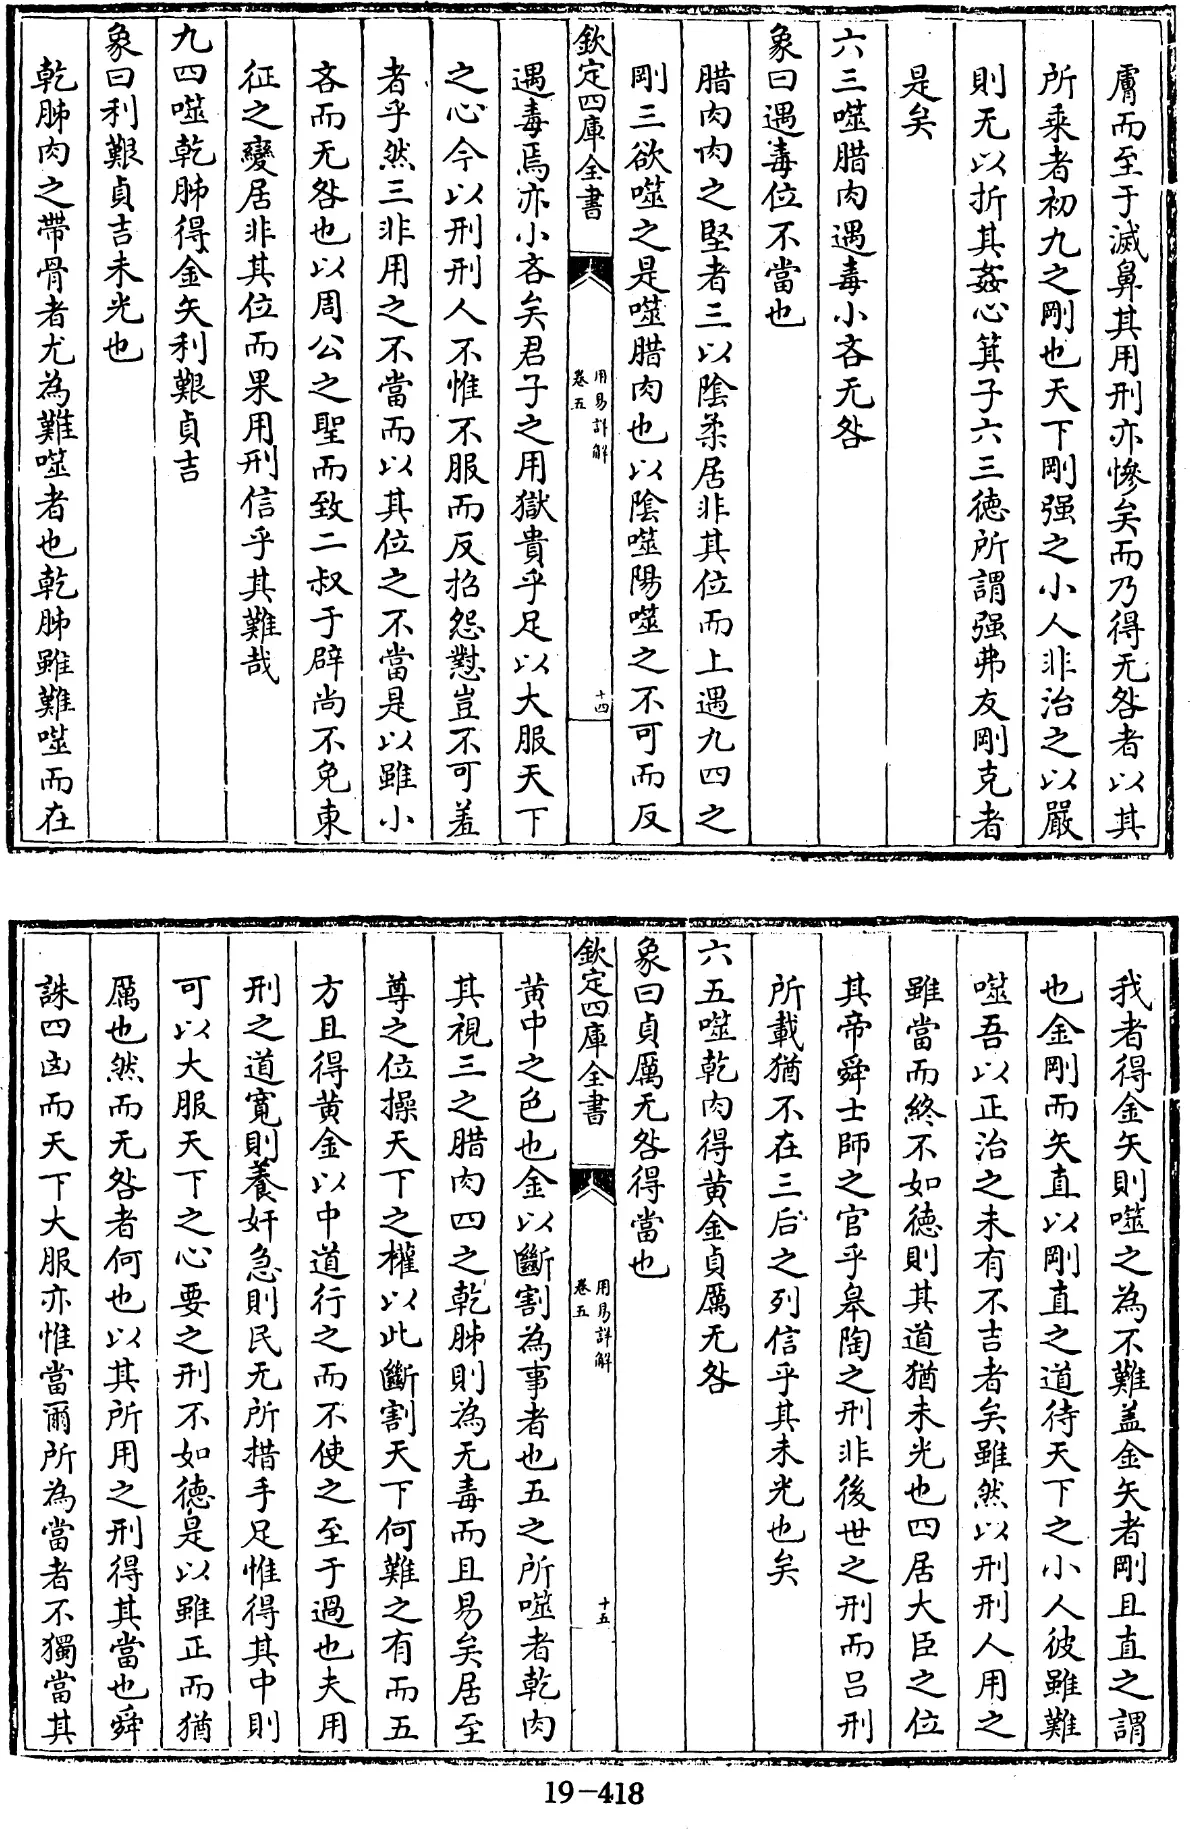 膚而至于滅鼻其用刑亦慘矣而乃得无咎者以其
所乘者初九之剛也天下剛强之小人非治之以嚴
則无以折其姦心箕子六三德所謂强弗友剛克者
是矣
六三噬腊肉遇毒小吝无咎
象曰遇毒位不當也
腊肉肉之堅者三以陰柔居非其位而上遇九四之
剛三欲噬之是噬腊肉也以陰噬陽噬之不可而反
欽定四庫全書
用易詳解
卷五
十四
遇毒焉亦小吝矣君子之用獄貴乎足以大服天下
之心今以刑刑人不惟不服而反招怨懟豈不可羞
者乎然三非用之不當而以其位之不當是以雖小
吝而无咎也以周公之聖而致二叔于辟尚不免東
征之變居非其位而果用刑信乎其難哉
九四噬乾胏得金矢利艱貞吉
象曰利艱貞吉未光也
乾胏肉之帶骨者尤為難噬者也乾胏雖難噬而在
我者得金矢則噬之為不難盖金矢者剛且直之謂
也金剛而矢直以剛直之道待天下之小人彼雖難
噬吾以正治之未有不吉者矣雖然以刑刑人用之
雖當而終不如德則其道猶未光也四居大臣之位
其帝舜士師之官乎皋陶之刑非後世之刑而吕刑
所載猶不在三后之列信乎其未光也矣
六五噬乾肉得黄金貞厲无咎
象曰貞厲无咎得當也
欽定四庫全書
用易詳解
卷五
十五
黄中之色也金以斷割為事者也五之所噬者乾肉
其視三之腊肉四之乾胏則為无毒而且易矣居至
尊之位操天下之權以此斷割天下何難之有而五
方且得黄金以中道行之而不使之至于過也夫用
刑之道寛則養奸急則民无所措手足惟得其中則
可以大服天下之心要之刑不如德是以雖正而猶
厲也然而无咎者何也以其所用之刑得其當也舜
誅四凶而天下大服亦惟當爾所為當者不獨當其
19-418